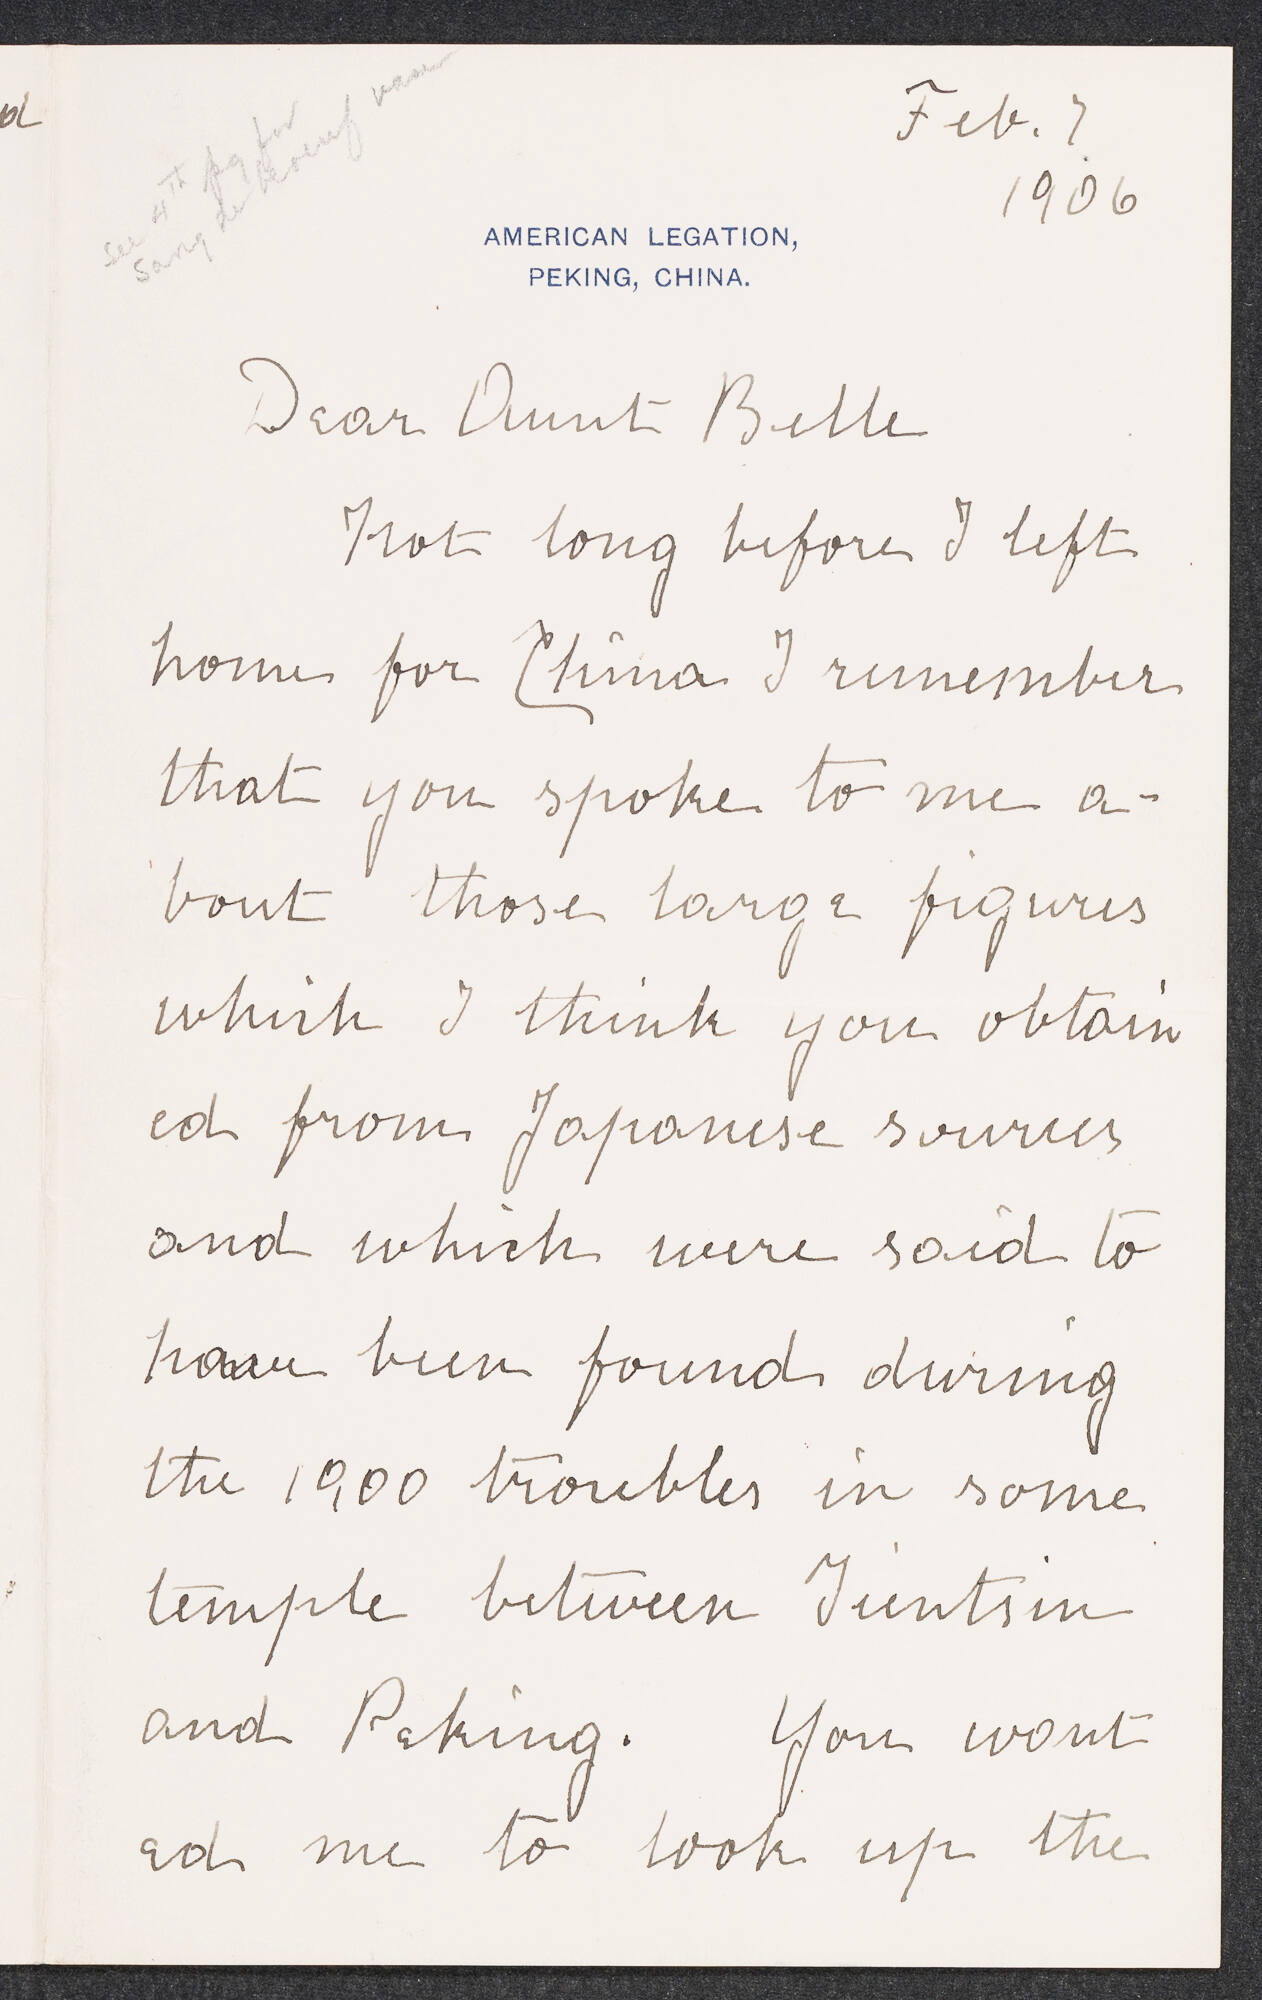 see 4th pg for
sang de boeuf vase
Feb. 7
1906
AMERICAN LEGATION,
PEKING, CHINA.
Dear Aunt Belle
Not long before I left
home for China I remember
that you spoke to me a-
bout those large figures
which I think you obtain
ed from Japanese sources
and which were said to
have been found during
the 1900 troubles in some
temple between Tientsin
and Peking. You want
ed me to look up the